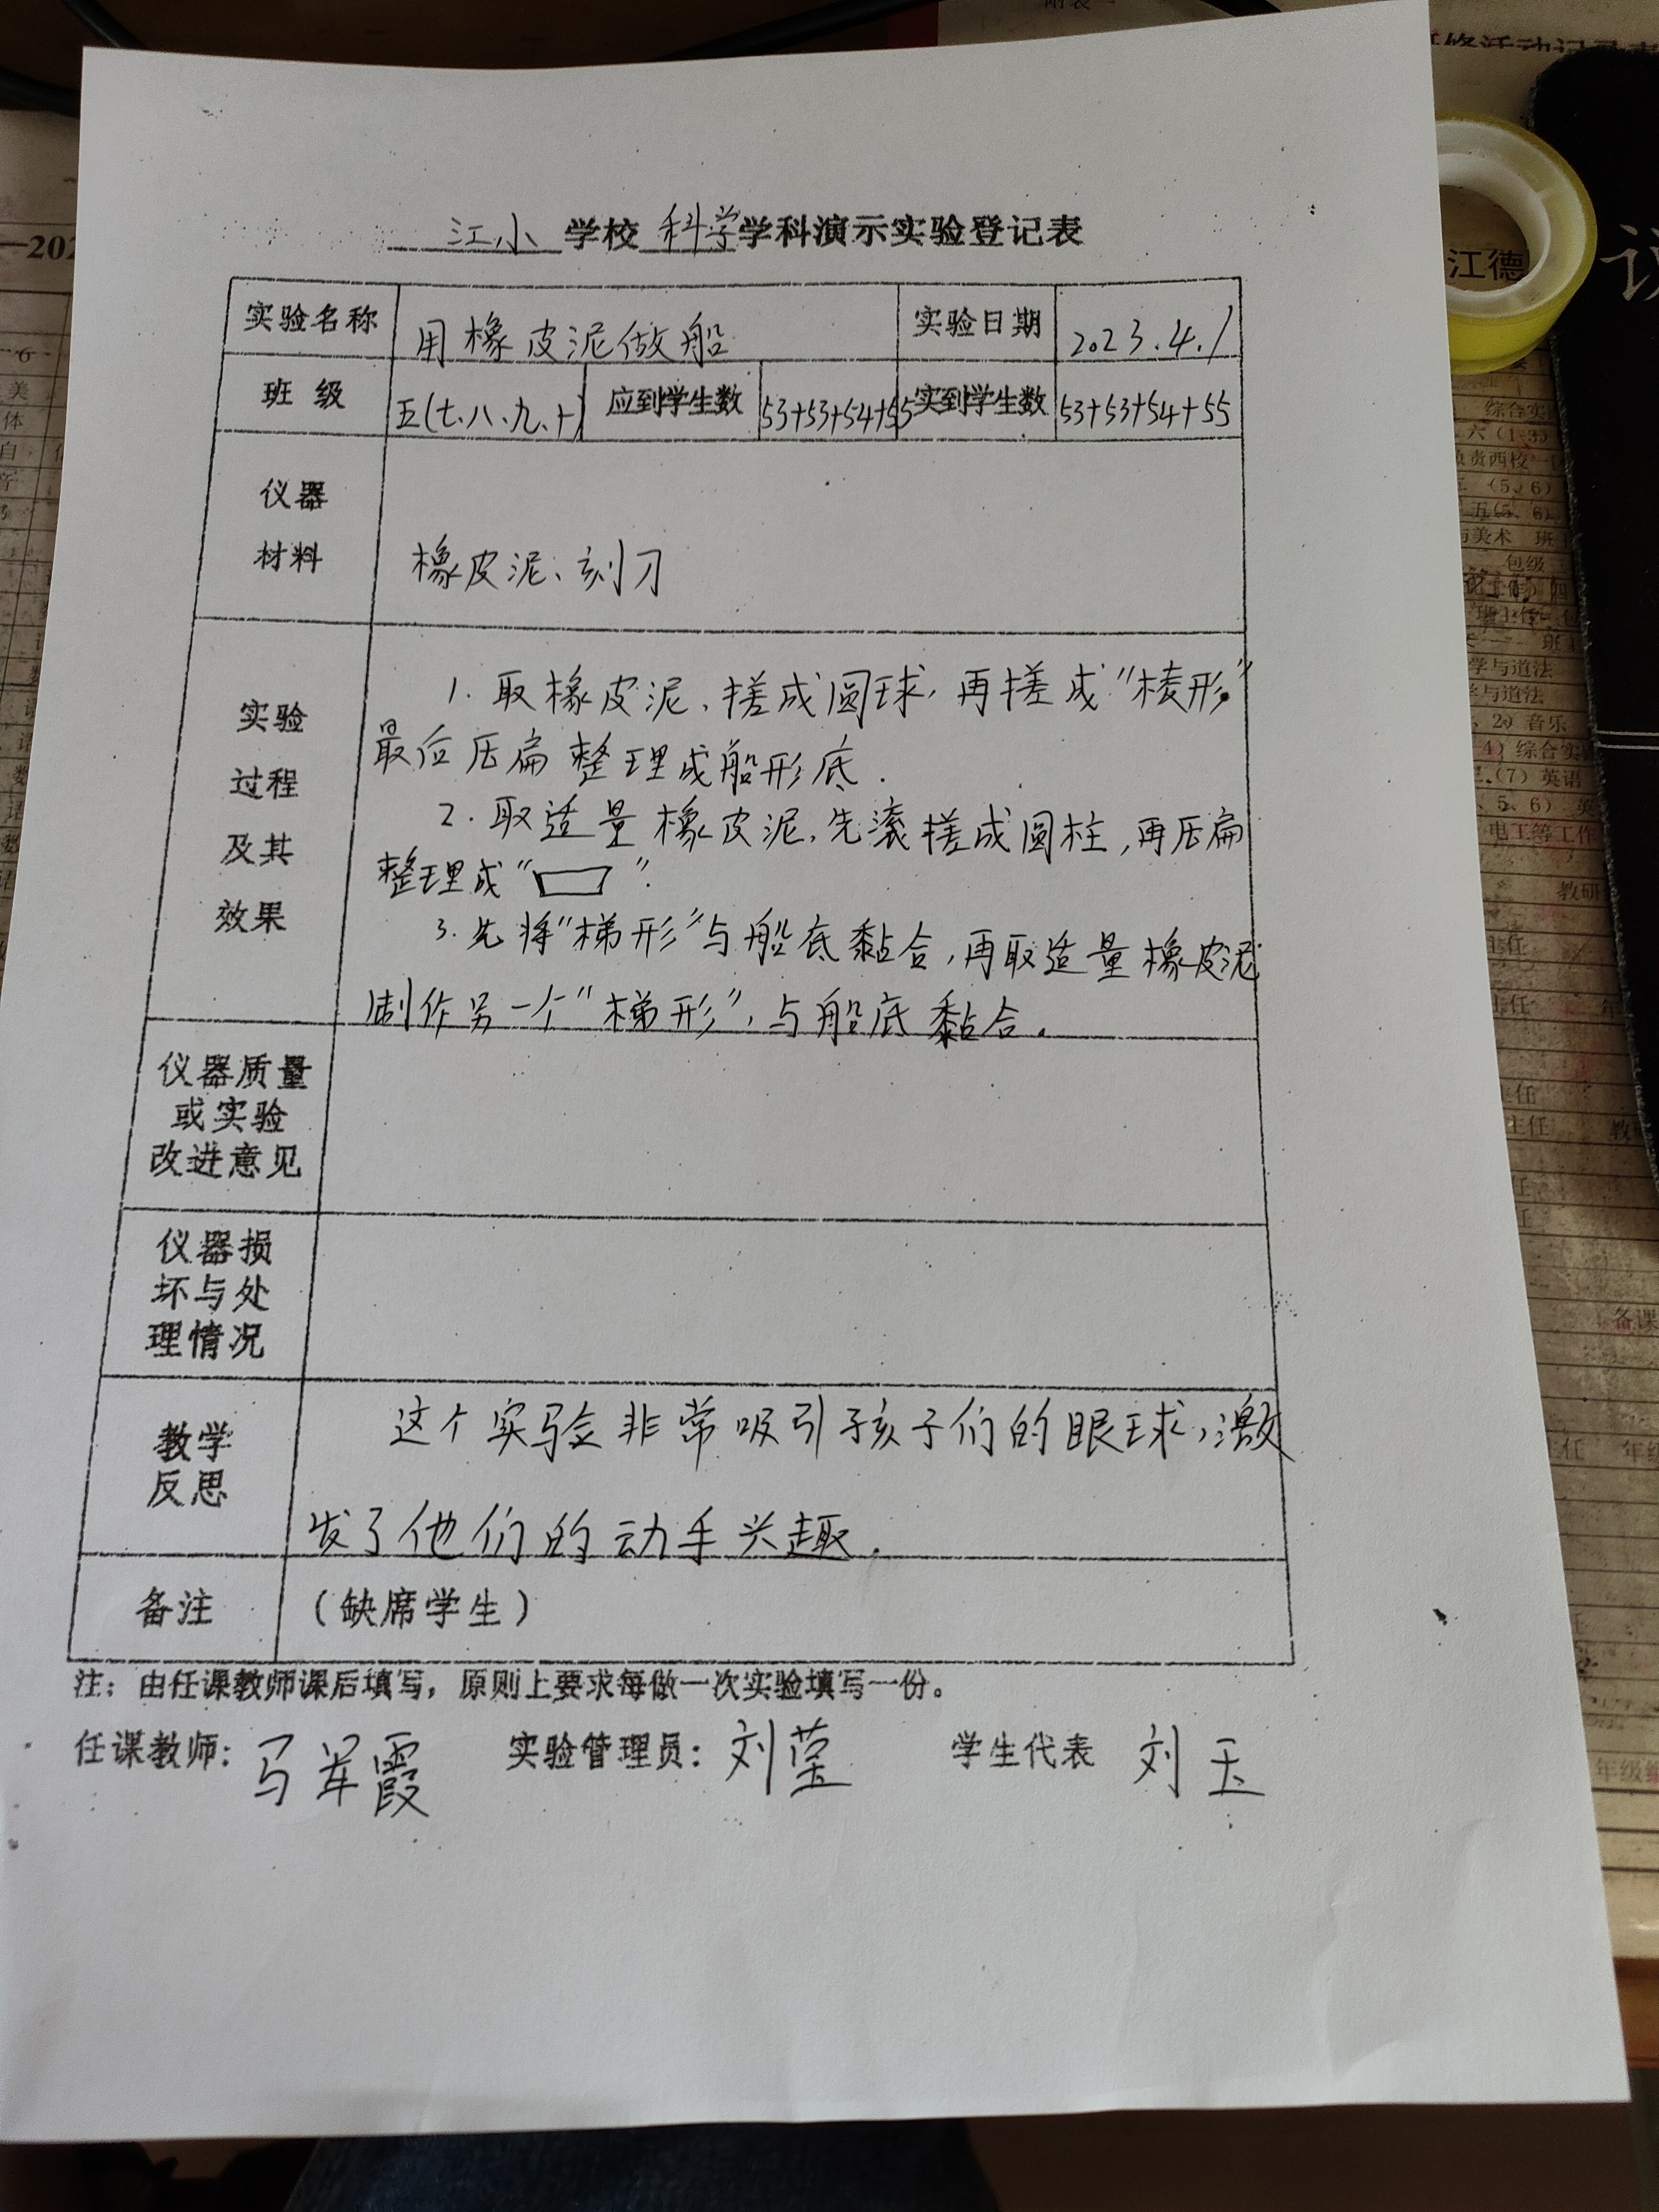 江小 学校 科学 学科演示实验登记表
实验名称 用橡皮泥做船 实验日期 2023.4.1
班 级 五(七、八、九、十) 应到学生数 53+53+54+55 实到学生数 53+53+54+55
仪器
材料 橡皮泥、刻刀
实验
过程
及其
效果
1. 取橡皮泥、搓成圆球,再搓成"棱形"
最后压扁整理成船形底.
2. 取适量橡皮泥,先滚搓成圆柱,再压扁
整理成" ".
3. 先将"梯形"与船底黏合,再取适量橡皮泥
制作另一个"梯形",与船底黏合.
仪器质量
或实验
改进意见
仪器损
坏与处
理情况
教学
反思
这个实验非常吸引孩子们的眼球,激
发了他们的动手兴趣.
备注 (缺席学生)
注:由任课教师课后填写,原则上要求每做一次实验填写一份。
任课教师: 马 霞 实验管理员: 刘莹 学生代表 刘玉
江德